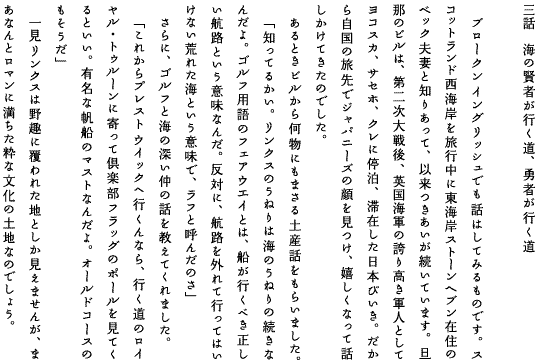 三話　海の賢者が行く道、勇者が行く道
ブロークンイングリッシュでも話はしてみるものです。ス
コットランド西海岸を旅行中に東海岸ストーンヘブン在住の
ベック夫妻と知りあって、以来つきあいが続いています。旦
那のビルは、第二次大戦後、英国海軍の誇り高き軍人として
ヨコスカ、サセホ、クレに停泊、滞在した日本びいき。だか
ら自国の旅先でジャパニーズの顔を見つけ、嬉しくなって話
しかけてきたのでした。
あるときビルから何物にもまさる土産話をもらいました。
「知ってるかい。リンクスのうねりは海のうねりの続きな
んだよ。ゴルフ用語のフェアウエイとは、船が行くべき正し
い航路という意味なんだ。反対に、航路を外れて行ってはい
けない荒れた海という意味で、ラフと呼んだのさ」
さらに、ゴルフと海の深い仲の話を教えてくれました。
「これからプレストウイックへ行くんなら、行く道のロイ
ヤル・トゥルーンに寄って倶楽部フラッグのポールを見てく
るといい。有名な帆船のマストなんだよ。オールドコースの
もそうだ」
一見リンクスは野趣に覆われた地としか見えませんが、ま
あなんとロマンに満ちた粋な文化の土地なのでしょう。